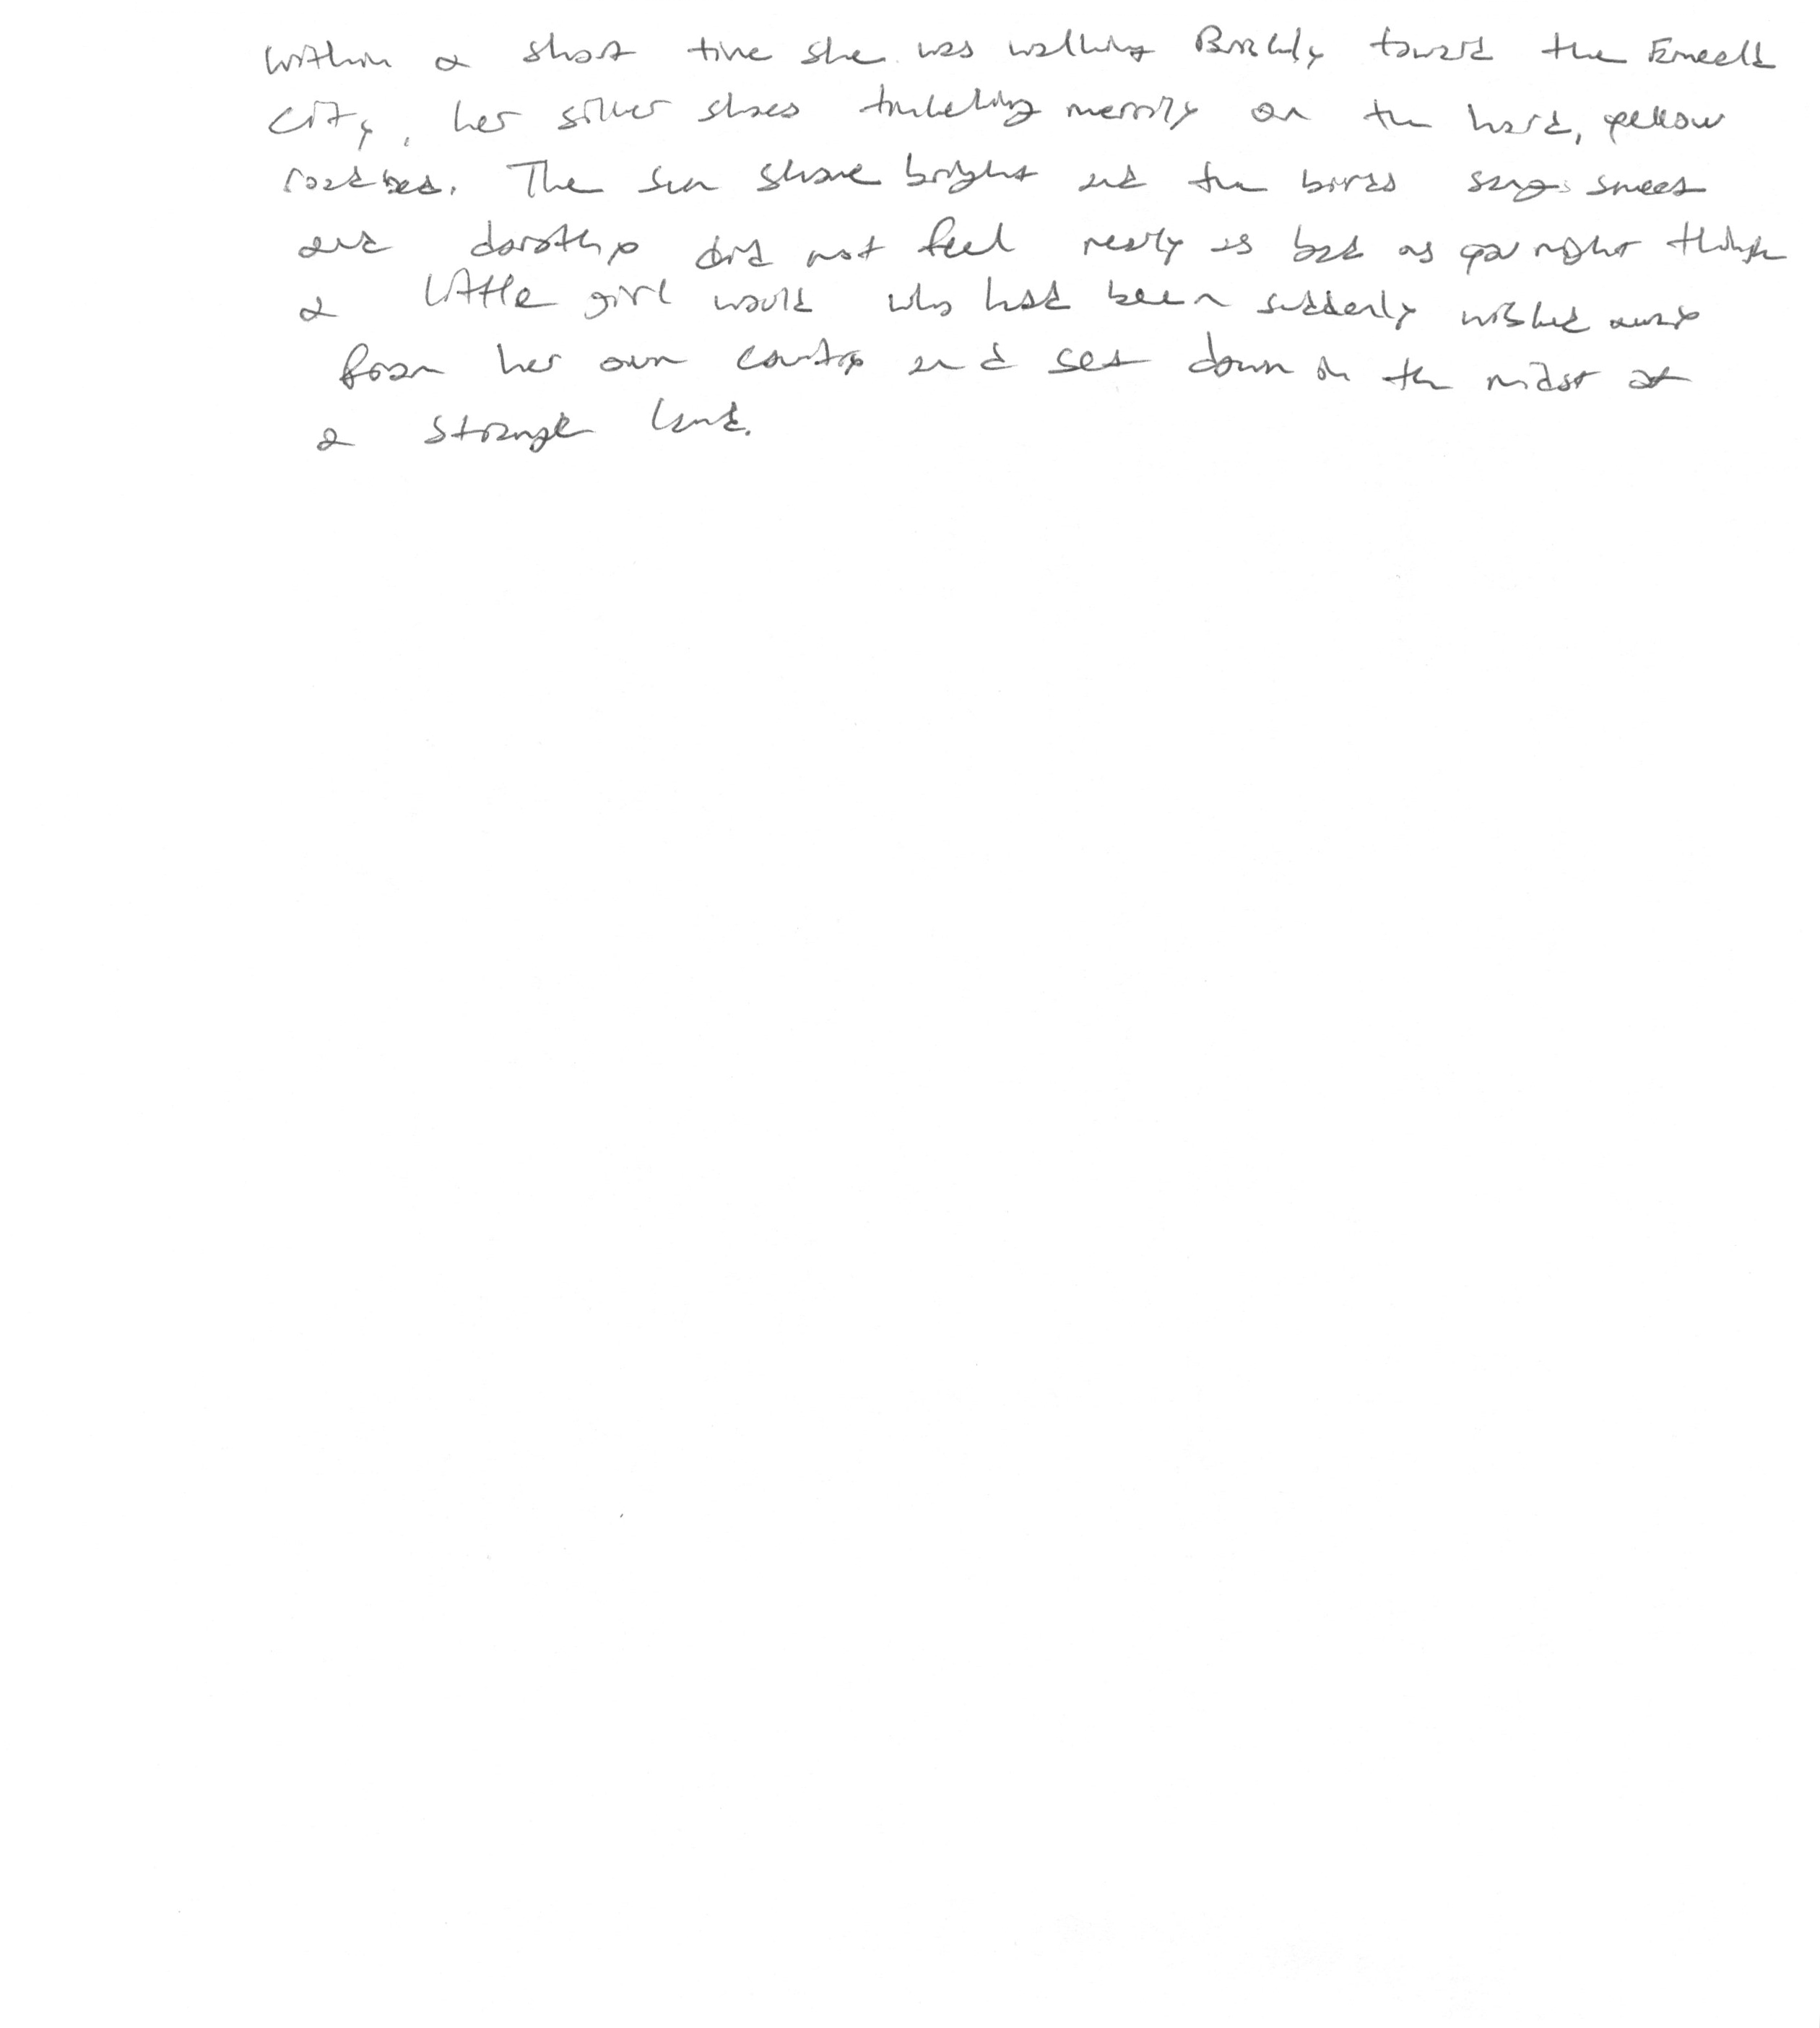 within a short time she was walking Briskly toward the Emeeld
City, her silver shoes tinkeling merrily on the hard, yellow
roadbed. The sun shone bright and the birds sang sweet
and dorothy did not feel nearly as bad as you might think
a little girl would who had been suddenly wisked away
from her own country and set down in the midst of
a strange land.